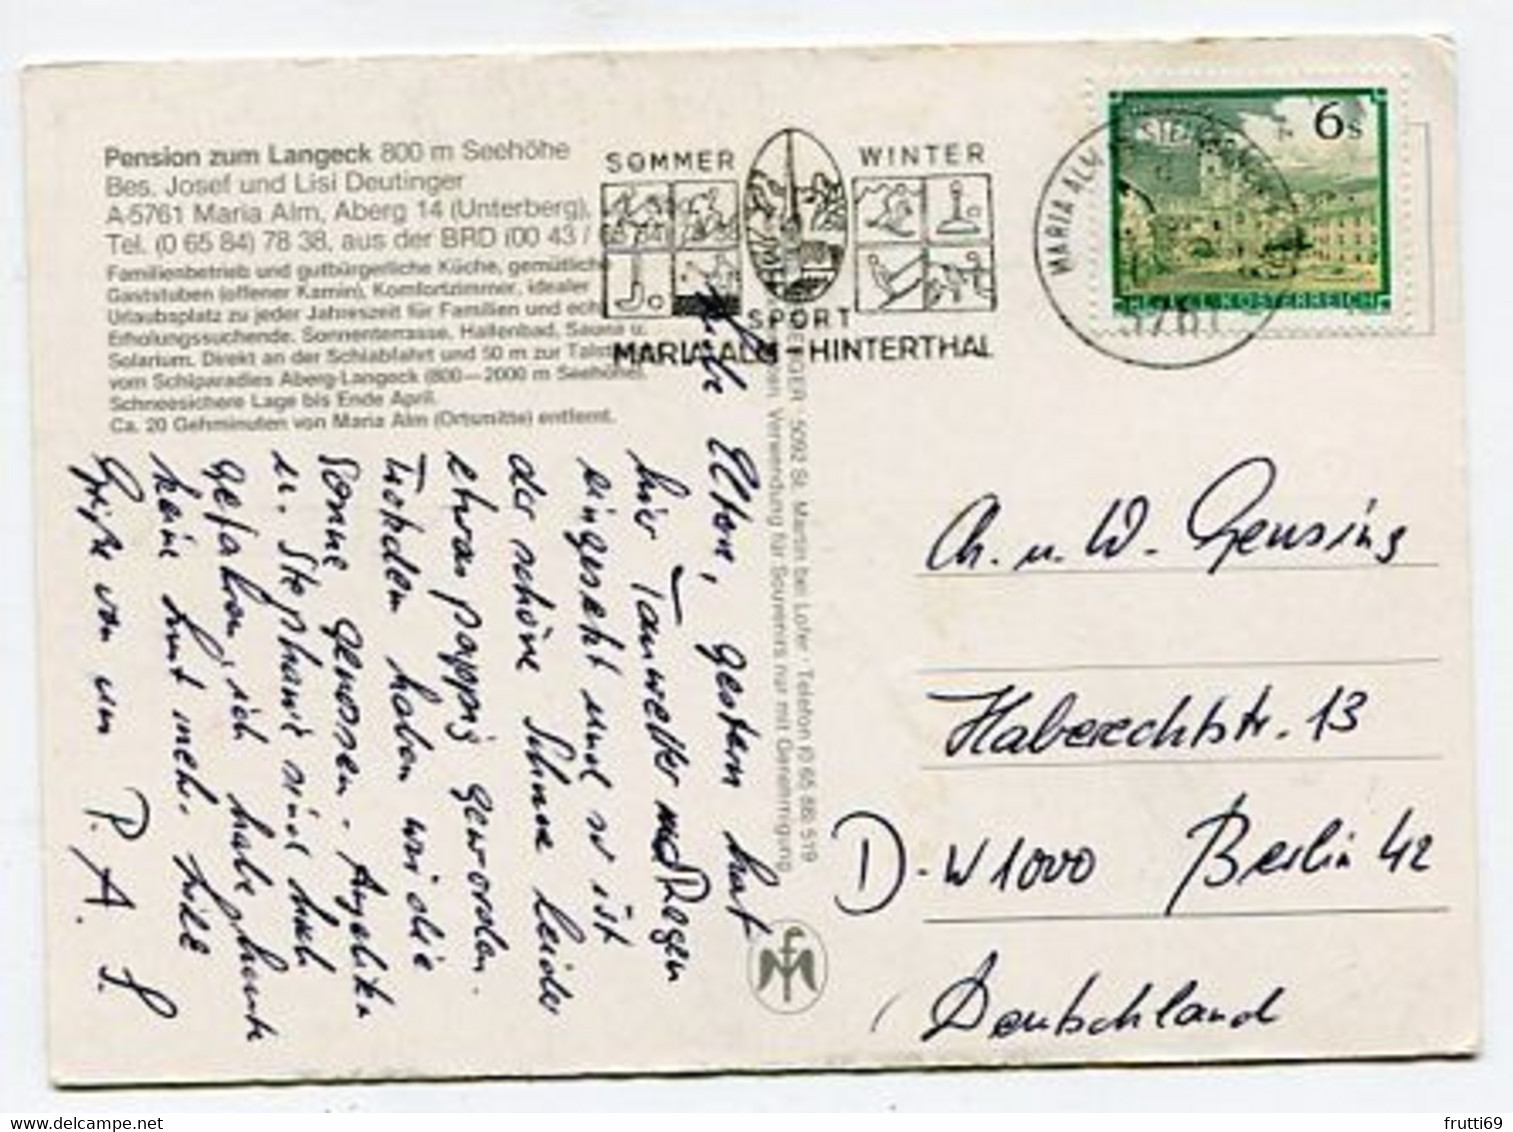 Pension zum Langeck 800 m Seehöhe
Bes. Josef und Lisi Deutinger
A-5761 Maria Alm, Aberg 14 (Unterberg),
Tel. (0 65 84) 78 38, aus der BRD (00 43 / 65 84)
Familienbetrieb und gutbürgerliche Küche, gemütliche
Gaststuben (offener Kamin), Komfortzimmer, idealer
Urlaubsplatz zu jeder Jahreszeit für Familien und
Erholungssuchende. Sonnenterrasse, Hallenbad, Sauna u.
Solarium. Direkt an der Schiabfahrt und 50 m zur
vom Schiparadies Aberg-Langeck (800—2000 m Seehöhe),
Schneesichere Lage bis Ende April.
Ca. 20 Gehminuten von Maria Alm (Ortsmitte) entfernt.
SOMMER WINTER
SPORT
MARIA ALM - HINTERTHAL
MARIA ALM
5761
6 S
ÖSTERREICH
Liebe Eltern, gestern hat
hier Tauwetter und Regen
eingesetzt und so ist
der schöne Schnee leider
etwas pappig geworden.
Trotzdem haben wir die
Sonne genossen. Angelika
u. Stephanie sind noch
gefahren, ich habe heute
keine Lust mehr.
Grüße von uns
P. A. S.
5092 St. Martin bei Lofer · Telefon (0 65 88) 519
Verwendung für Souvenirs nur mit Genehmigung
Ch. u. W. Gensing
Haberechtstr. 13
D-W1000 Berlin 42
Deutschland
frutti69